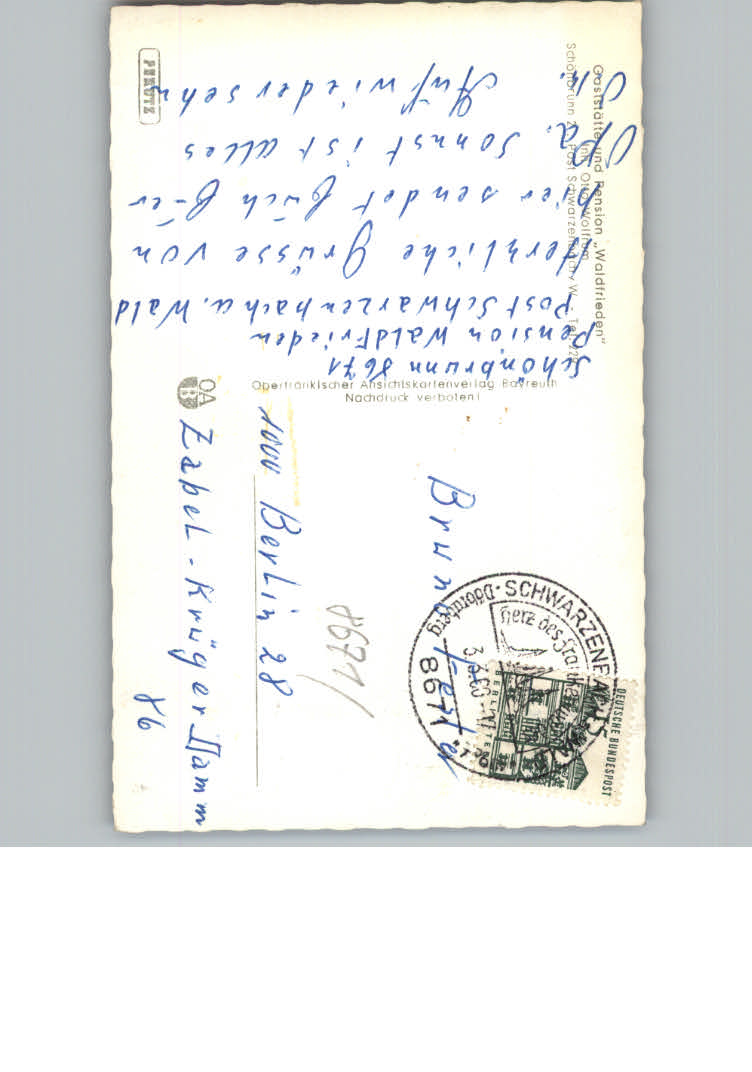 Gaststätte und Pension „Waldfrieden“
Inh. Otto Wolfrum
Schönbrunn Post Schwarzenbach / W. - Tel. 229
Schönbrunn 8671
Pension WaldFrieden
Post Schwarzenbach a. Wald
Herzliche Grüsse von
hier sendet Euch
Opa. Sonst ist alles
Auf wiedersehn
PERUTZ
Oberfränkischer Ansichtskartenverlag Bayreuth
Nachdruck verboten!
OA
DEUTSCHE BUNDESPOST
BERLIN
SCHWARZENBACH
Döbraberg
Herz des Frankenwaldes
8671
Bruno
8671/
1000 Berlin 28
Zabel-Krüger Damm
86